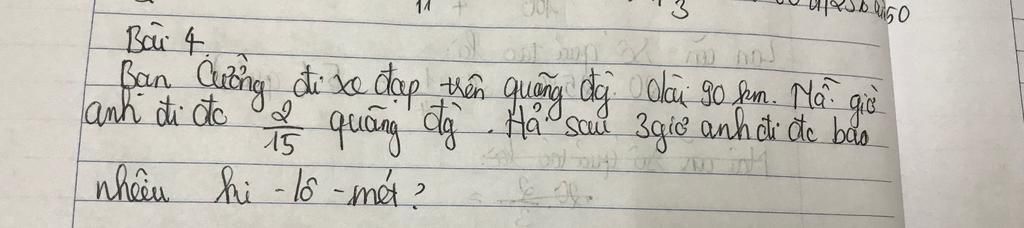 11 100 + 3 50
Bài 4
Bạn Cường đi xe đạp trên quãng đg dài 90 km. Mỗi giờ
anh đi đc 2/15 quãng đg. Hỏi sau 3 giờ anh đi đc bao
nhiêu ki-lô-mét?